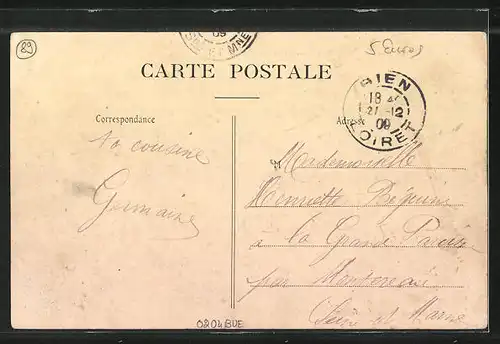 89
09
ET MNE
5 Euros
CARTE POSTALE
GIEN
18
21 -12
09
LOIRET
Correspondance
Adresse
ta cousine
Germaine
Mademoiselle
Henriette
à la Grande Paroisse
par Montereau
Seine et Marne
0204BUE